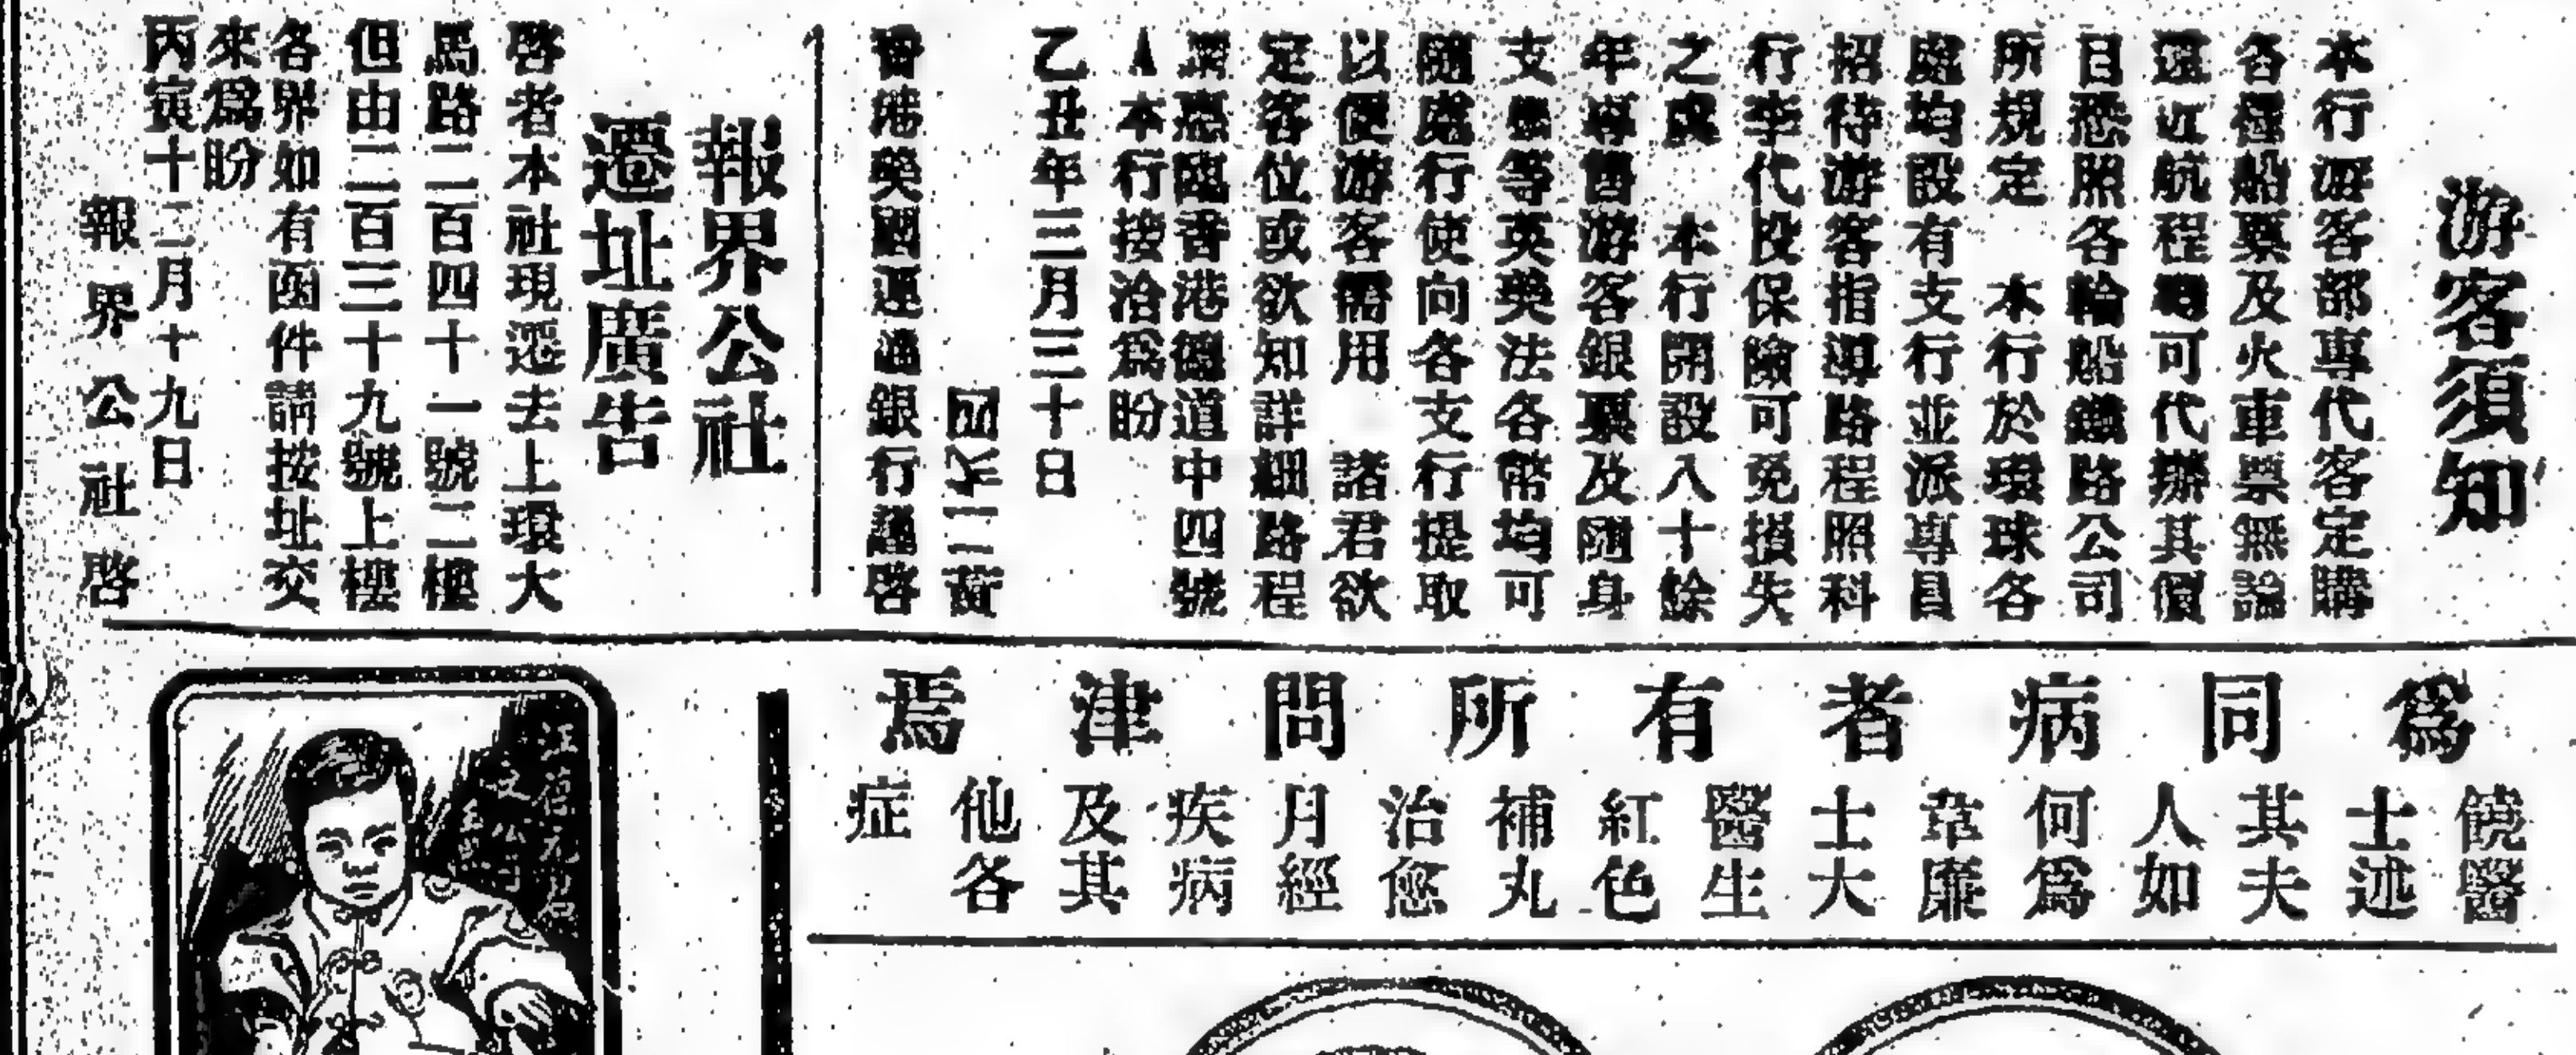 游客須知
本行游客部專代客定購
各種船票及火車票無論
遠近航程均可代辦其價
目悉照各輪船鐵路公司
所規定 本行於環球各
處均設有支行並派專員
招待游客指導路程照料
行李代投保險可免損失
之虞 本行開設八十餘
年專售游客銀票及隨身
支單等英美法各幣均可
隨處行使向各支行提取
以便游客需用 諸君欲
定客位或欲知詳細路程
請惠臨香港德道中四號
本行接洽為盼
乙丑年三月三十日
香港美國運通銀行謹啓
報界公社
遷址廣告
啓者本社現遷去上環大
馬路二百四十一號二樓
但由二百三十九號上樓
各界如有函件請按址交
來為盼
丙寅十二月十九日
報界公社啓
為同病者有所問津焉
饒醫
士述
其夫
人如
何為
韋廉
士大
醫生
紅色
補丸
治愈
月經
疾病
及其
他各
症